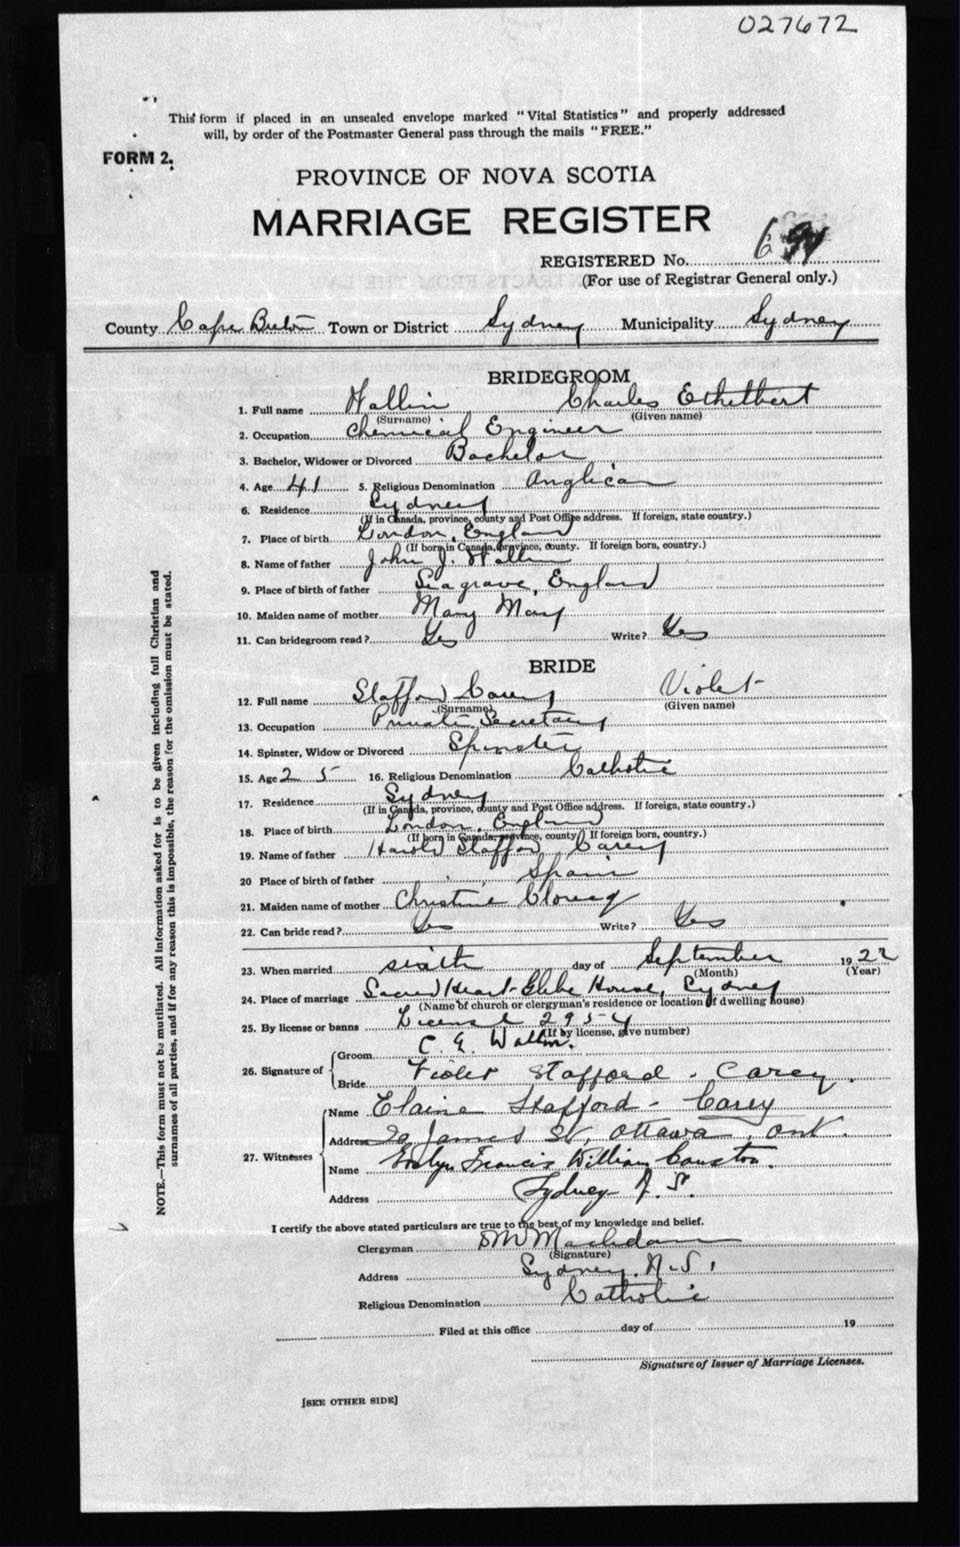 027672
This form if placed in an unsealed envelope marked "Vital Statistics" and properly addressed
will, by order of the Postmaster General pass through the mails "FREE."
FORM 2.
PROVINCE OF NOVA SCOTIA
MARRIAGE REGISTER
REGISTERED No.
(For use of Registrar General only.)
County Cape Breton Town or District Sydney Municipality Sydney
BRIDEGROOM
1. Full name Wallin Charles Ethelbert
(Surname) (Given name)
2. Occupation Chemical Engineer
3. Bachelor, Widower or Divorced Bachelor
4. Age 41 5. Religious Denomination Anglican
6. Residence Sydney
(If in Canada, province, county and Post Office address. If foreign, state country.)
7. Place of birth London, England
(If born in Canada, province, county. If foreign born, country.)
8. Name of father John J. Wallin
9. Place of birth of father Seagrave, England
10. Maiden name of mother Mary
11. Can bridegroom read? Yes Write? Yes
BRIDE
12. Full name Stafford Carey Violet
(Surname) (Given name)
13. Occupation Private Secretary
14. Spinster, Widow or Divorced Spinster
15. Age 25 16. Religious Denomination Catholic
17. Residence Sydney
(If in Canada, province, county and Post Office address. If foreign, state country.)
18. Place of birth London, England
(If born in Canada, province, county If foreign born, country.)
19. Name of father Harold Stafford Carey
20 Place of birth of father Spain
21. Maiden name of mother Christine
22. Can bride read? Yes Write? Yes
23. When married sixth day of September 1922
(Month) (Year)
24. Place of marriage Sacred Heart Glebe House, Sydney
(Name of church or clergyman's residence or location of dwelling house)
25. By license or banns License 2954
(If by license, give number)
26. Signature of
Groom C. E. Wallin.
Bride Violet Stafford - Carey.
27. Witnesses
Name Elaine Stafford - Carey
Address 20 James St, Ottawa, Ont.
Name Evelyn Francis William
Address Sydney N. S.
I certify the above stated particulars are true to the best of my knowledge and belief.
Clergyman
(Signature)
Address Sydney, N.S.
Religious Denomination Catholic
Filed at this office day of 19
Signature of Issuer of Marriage Licenses.
[SEE OTHER SIDE]
NOTE.—This form must not be mutilated. All information asked for is to be given including full Christian and
surnames of all parties, and if for any reason this is impossible, the reason for the omission must be stated.